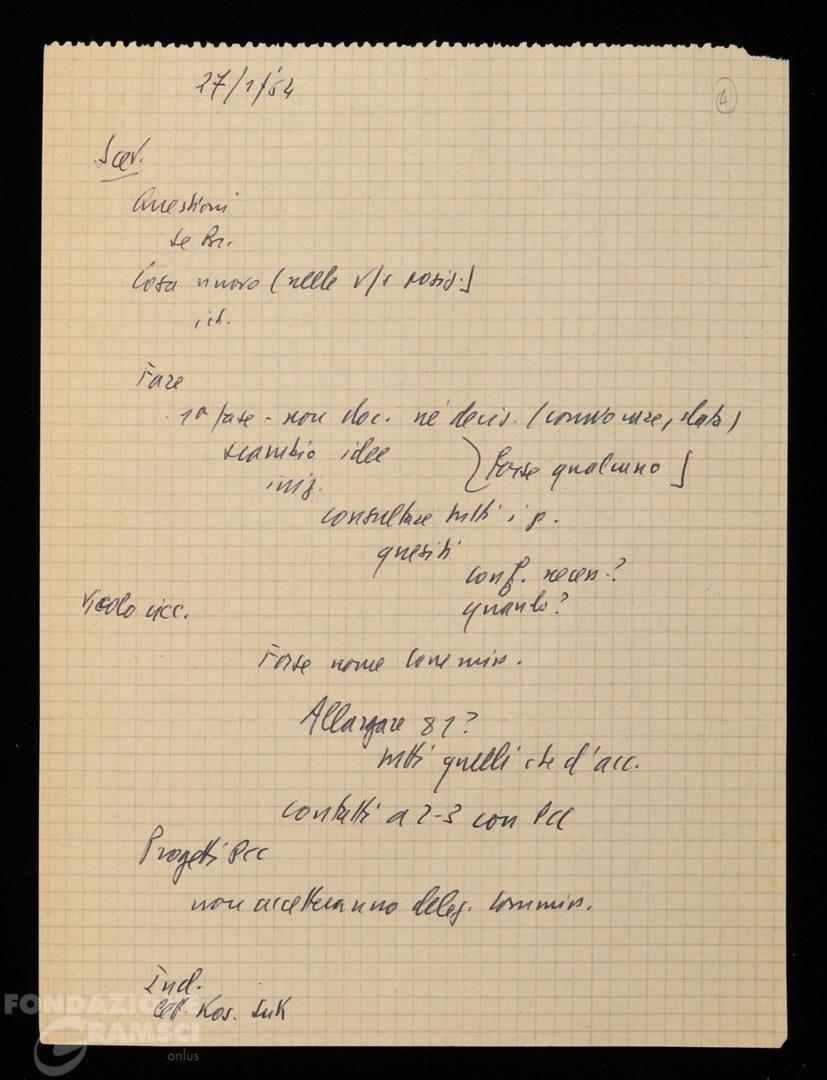 27/1/64
4
Scev.
Questioni
se Br.
Cosa nuovo (nelle v/s posiz.)
id.
Fare
1ª fase - non doc. né decis. (convocare, data)
scambio idee
iniz.
(Forse qualcuno)
consultare tutti i p.
quesiti
conf. necess.?
Vicolo ciec.
quando?
Forse nome commiss.
Allargare 81?
tutti quelli che d'acc.
contatti a 2-3 con PCC
Progetti PCC
non accetteranno deleg. commiss.
Ind.
Cett. Kos. Suk
FONDAZIONE
GRAMSCI
onlus